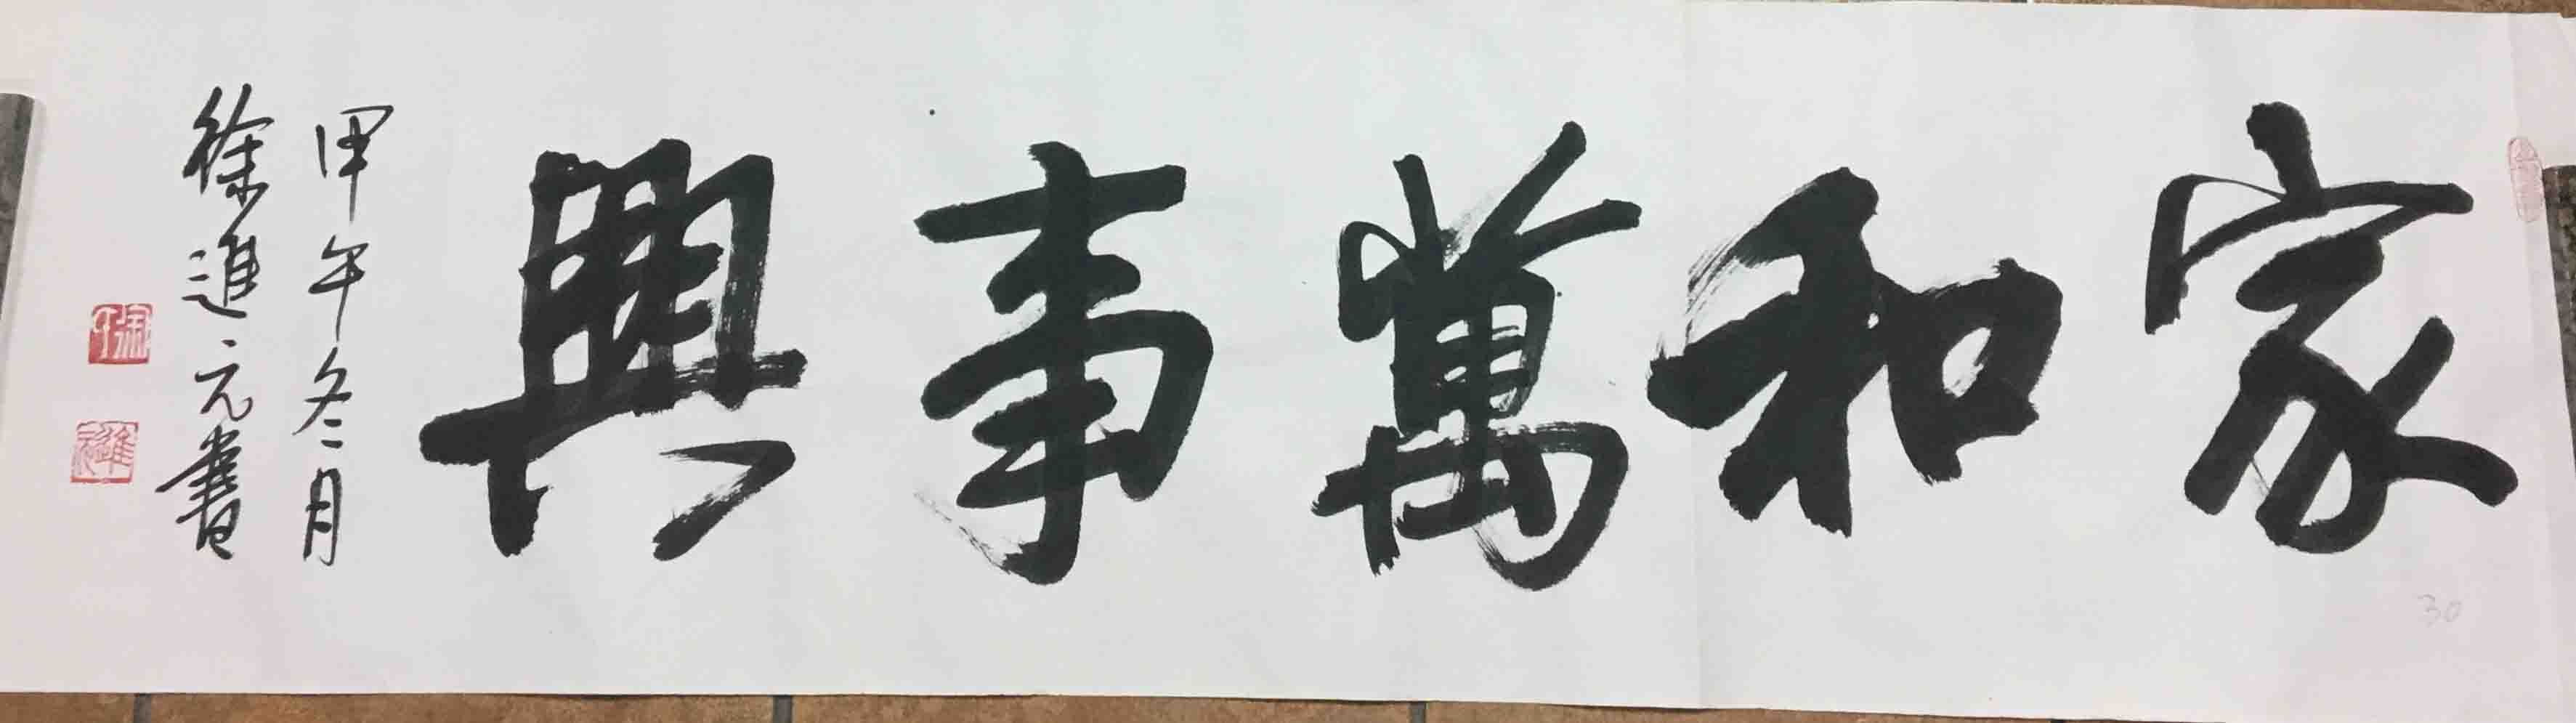 家和萬事興
甲午冬月
徐進元書
30